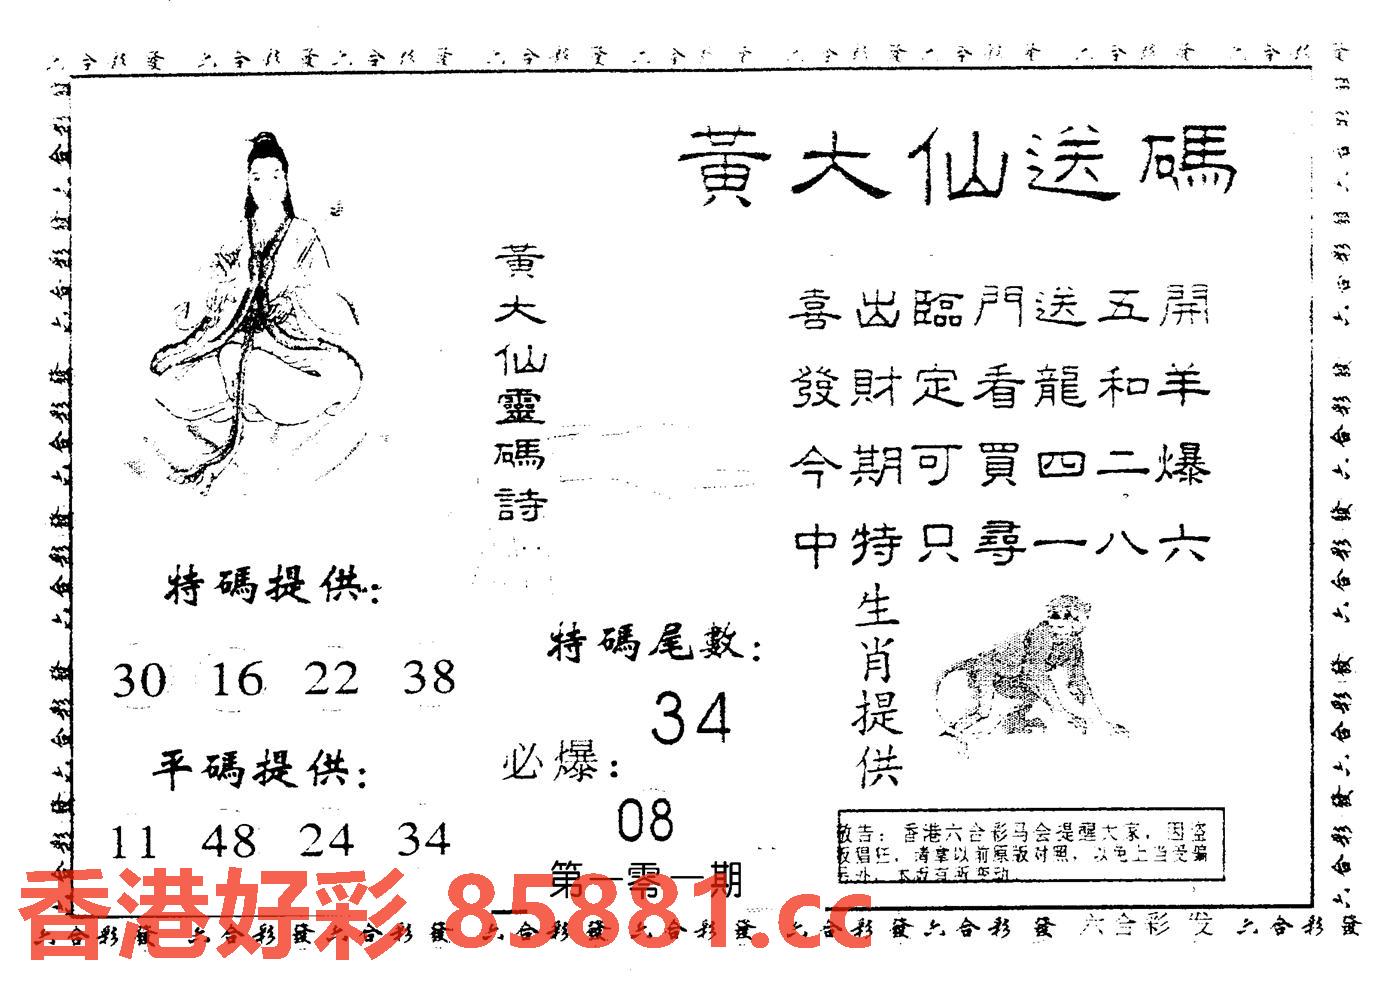 六合彩發 六合彩發六合彩發 六合彩發 六合彩發 六合彩發六合彩發 六合彩發 六合彩發
黃大仙送碼
黃大仙靈碼詩
喜出臨門送五開
發財定看龍和羊
今期可買四二爆
中特只尋一八六
特碼提供：
30 16 22 38
平碼提供：
11 48 24 34
特碼尾數：
34
必爆：
08
第一零一期
生肖提供
敬告：香港六合彩马会提醒大家，因盗
版猖狂，请拿以前原版对照，以免上当受骗
另外，本版有所变动
六合彩發 六合彩發六合彩發 六合彩發 六合彩發 六合彩發六合彩發 六合彩 发 六合彩發
香港好彩 85881.cc